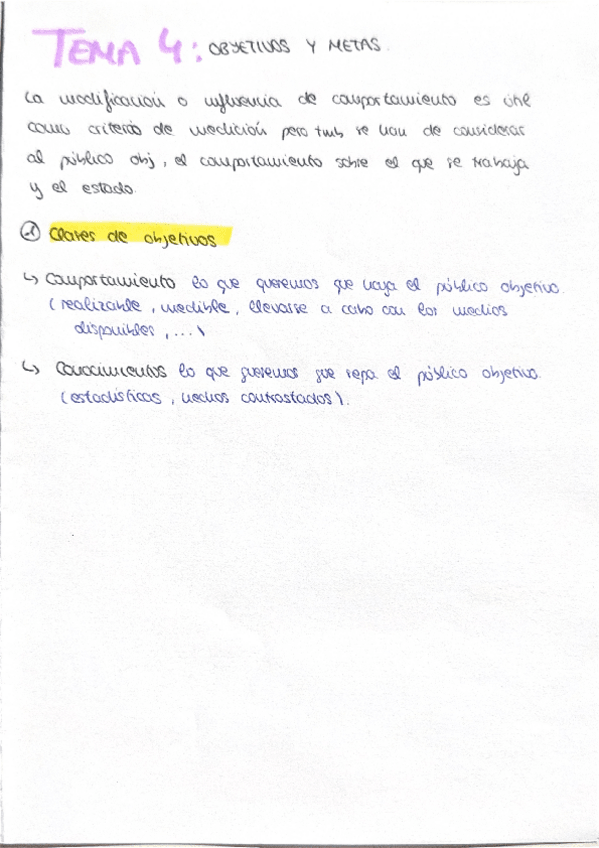 TEMA 4: OBJETIVOS Y METAS.
La modificación o influencia de comportamiento es útil
como criterio de medición pero tmb se han de considerar
al público obj, el comportamiento sobre el que se trabaja
y el estado.
1 Clases de objetivos
↳ Comportamiento lo que queremos que haga el público objetivo.
(realizable, medible, llevarse a cabo con los medios
disponibles, ...)
↳ Conocimientos lo que queremos que sepa el público objetivo.
(estadísticas, hechos contrastados).